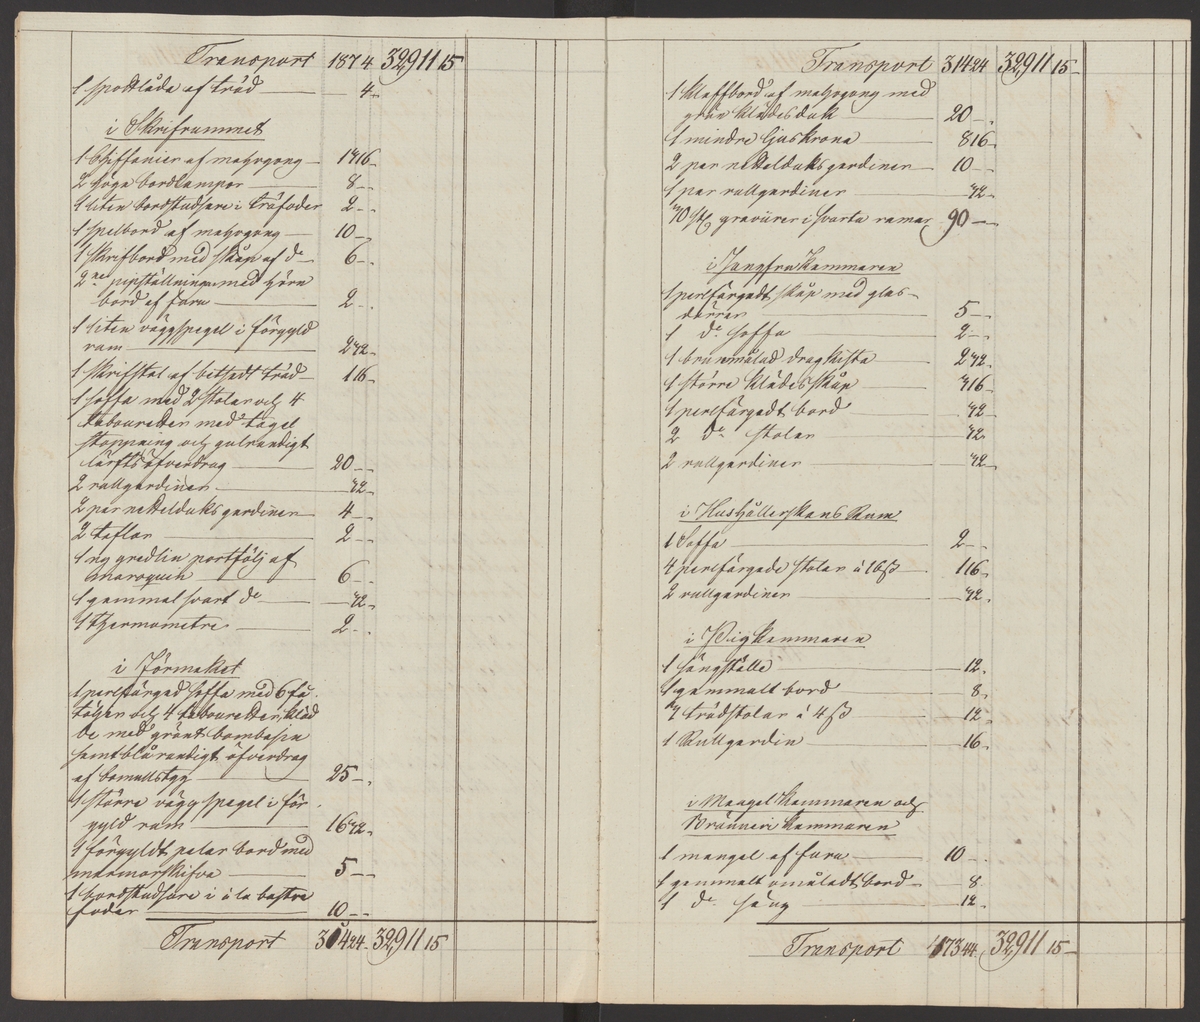 Transport 187 4 32,911 15
1 spottlåda af träd 4
i Skrifrummet
1 Chiffonier af mahogony 17 16
2 höga bordlampor 8 -
1 liten bordstudsare i träfoder 2 -
1 spelbord af mahogony 10 -
1 skrifbord med skåp af do 6 -
2ne pipställningar med hörn
bord af furu 2 -
1 liten väggspegel i förgyld
ram 2 32
1 skrifstol af betsadt träd 1 16
1 soffa med 2 stolar och 4
tabouretter med tagel
stoppning och gulrandigt
lärfts öfverdrag 20 -
2 rullgardiner 32
2 par nettelduks gardiner 4 -
2 taflor 2 -
1 ny gredlin portfölj af
maroquin 6 -
1 gammal svart do 32
1 thermometre 2 -
i Förmaket
1 perlfärgad soffa med 6 få-
töljer och 4 tabouretter, kläd
de med grönt bombasin
samt blårandigt öfverdrag
af bomullstyg 25 -
1 större väggspegel i för-
gyld ram 16 32
1 förgyldt pelar bord med
marmorskifva 5 -
1 bordstudsare i alabaster
foder 10 -
Transport 314 24 32,911 15
Transport 314 24 32,911 15
1 klaffbord af mahogony med
grön klädesduk 20 -
1 mindre ljuskrona 8 16
2 par nettelduks gardiner 10 -
1 par rullgardiner 32
70 st. gravurer i svarta ramar 90 -
i Jungfrukammaren
1 perlfärgadt skåp med glas-
dörrar 5 -
1 do soffa 2 -
1 brunmålad dragkista 2 32
1 större klädesskåp 3 16
1 perlfärgadt bord 32
2 do stolar 32
2 rullgardiner 32
i Hushållerskans Rum
1 Soffa 2 -
4 perlfärgade stolar à 16 ß 1 16
2 rullgardiner 32
i Pigkammaren
1 sängställe 12
1 gammalt bord 8
3 trädstolar à 4 ß 12
1 Rullgardin 16
i Mangel Kammaren och
Brännerikammaren
1 mangel af furu 10 -
1 gammalt omåladt bord 8
1 do säng 12
Transport 473 44 32,911 15